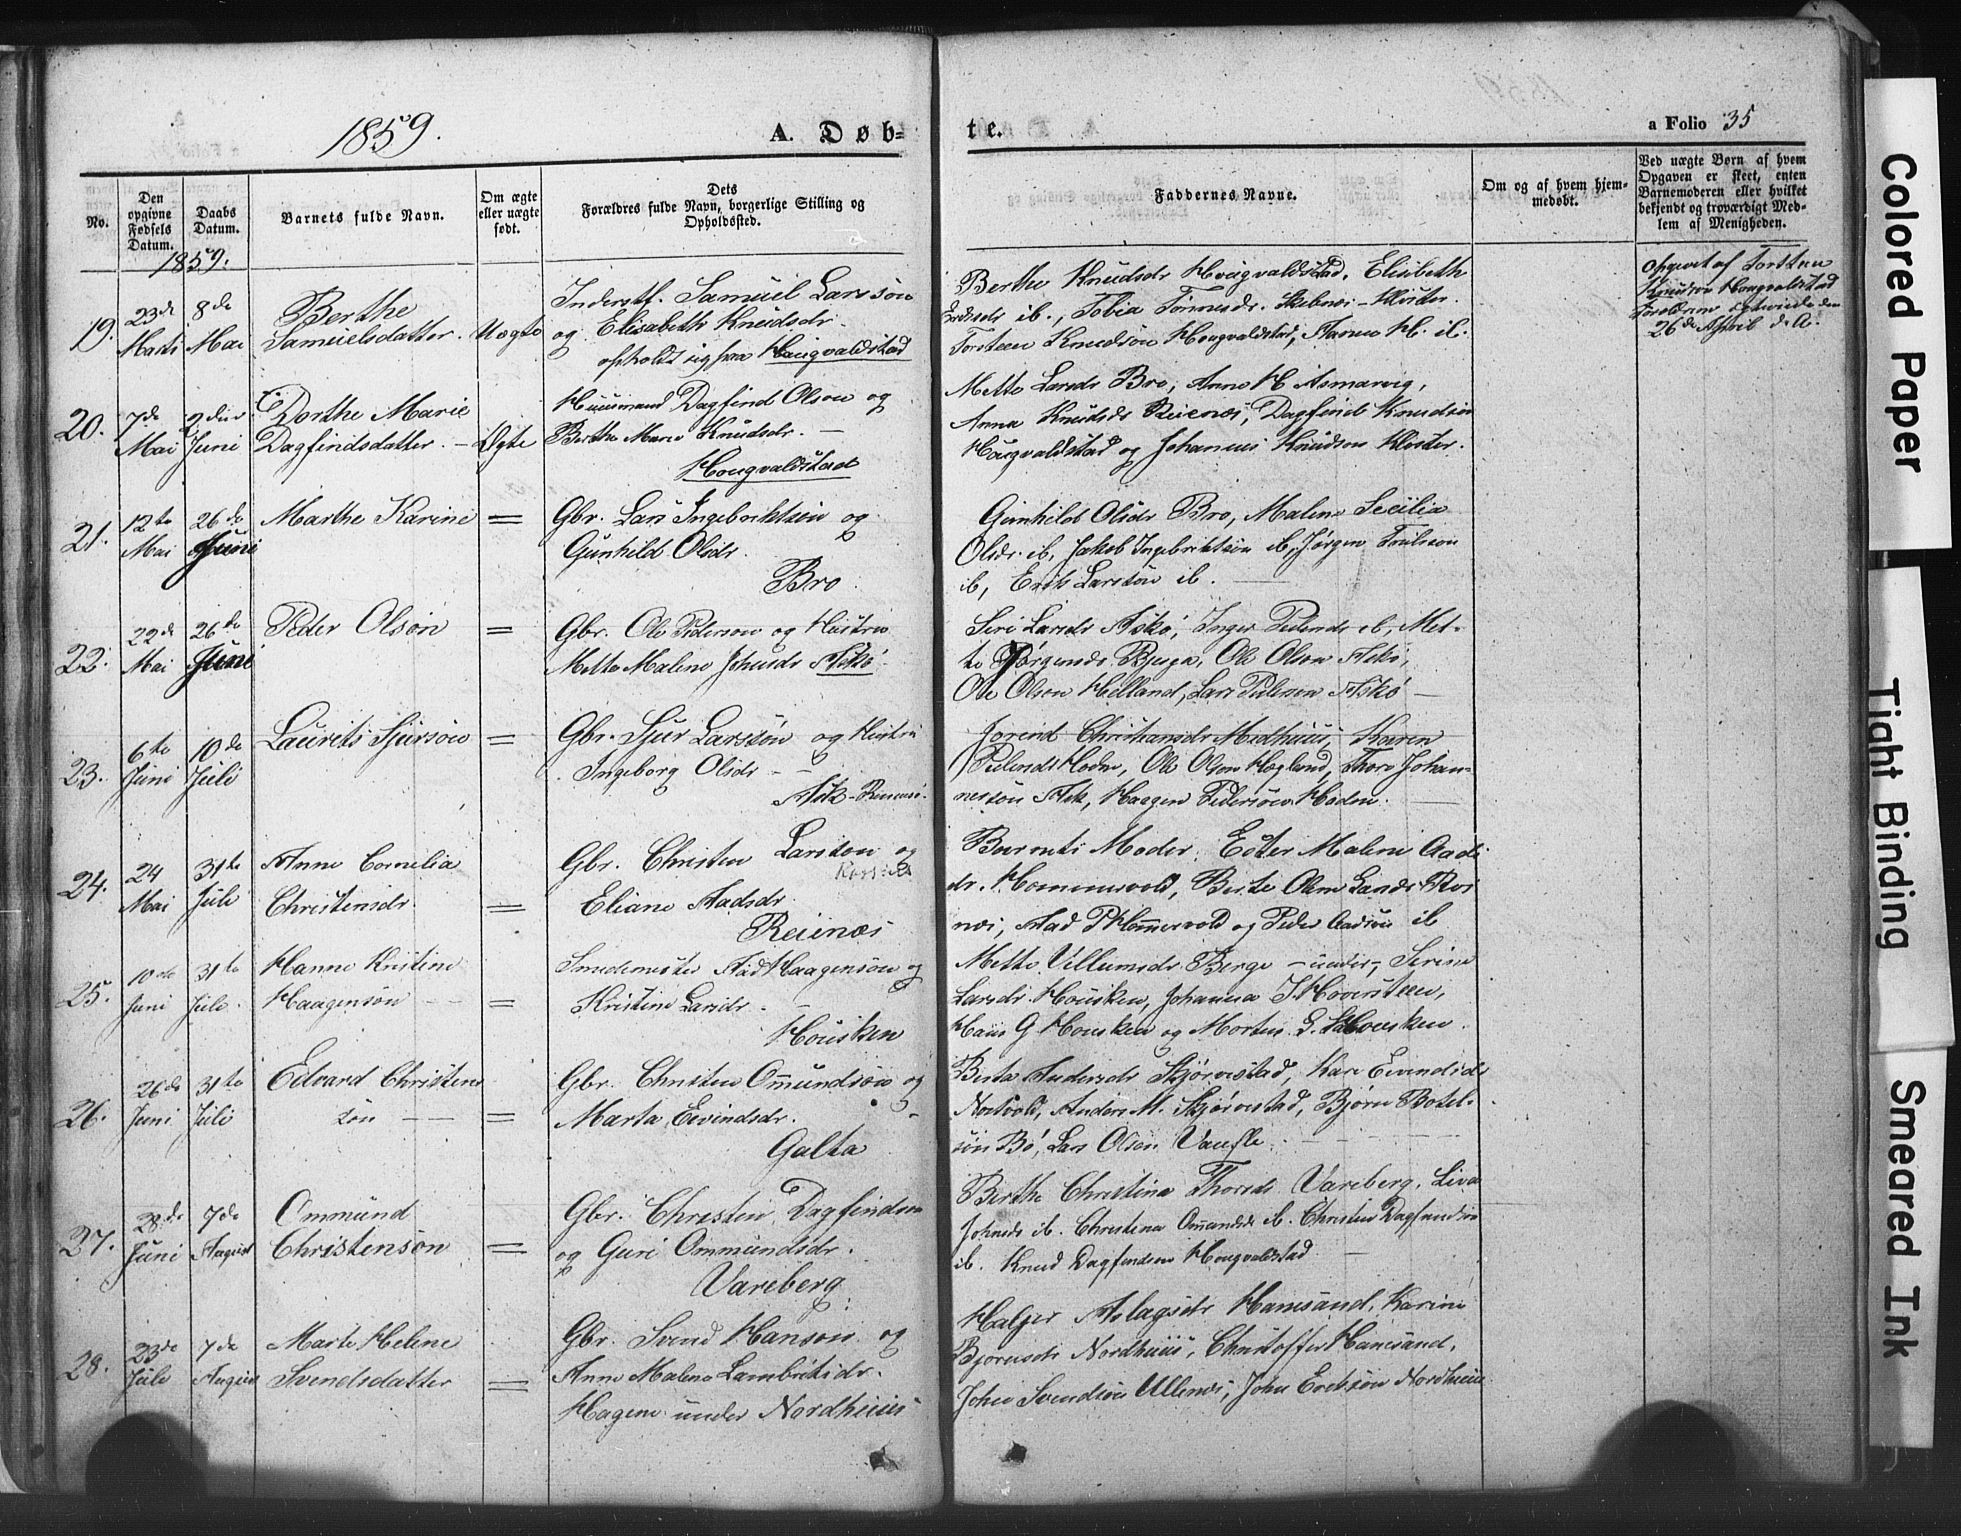 1859.
A. Døb-
te.
a Folio 35
No.
Den opgivne Fødsels Datum.
Daabs Datum.
Barnets fulde Navn.
Om ægte eller uægte født.
Dets Forældres fulde Navn, borgerlige Stilling og Opholdssted.
Faddernes Navne.
Om og af hvem hjem-
medøbt.
Ved uægte Børn af hvem
Opgaven er skeet, enten
Barnemøderen eller hvilket
bekjendt og troværdigt Med-
lem af Menigheden.
1859.
19. 23de Marts 8de Mai
Berthe
Samuelsdatter. Uægte
Inderstf. Samuel Larssøn
og Elisabeth Knudsdr.
opholdt sig paa Hougvaldstad
Berthe Knudsdr Hougvaldstad, Elisabeth
ib., Tobia Tønnesdr. Kloster.
Torsteen Knudsøn Hougvaldstad, H. ib.
Opgivet af Torsteen
Knudsen Hougvaldstad
Forældrene
26de April d. A.
20. 7de Mai 2den Juni
Dorthe Marie
Dagfindsdatter. - Ægte
Huusmand Dagfind Olson og
Berthe Marie Knudsdr. —
Hougvaldstad
Mette Larsdr Bro, Anne H Asmarvig,
Anna Knudsdr Reienæs, Dagfind Knudsøn
Hougvaldstad og Johannes Knudson Kloster.
21. 12te Mai 26de Juni
Marthe Karine =
Gbr. Lars Ingebriktsøn og
Gunhild Olsdr.
Bro
Gunhild Olsdr Bro, Malene Secilia
Olsdr. ib, Jakob Ingebriktsøn ib, Jørgen
ib, Erik Larssøn ib. —
22. 22de Mai 26de Juni
Peder Olsøn =
Gbr. Ole Pederson og Hustru
Mette Malene Johnsdr Askø.
Siri Larsdr Askø, Inger Pedersdr ib, Met-
te Jørgensdr Bjerga, Ole Olson Askø,
Ole Olson Helland, Lars Pederson Askø —
23. 6te Juni 10de Juli
Laurits Sjursøn =
Gbr. Sjur Larssøn og Hustru
Ingeborg Olsdr —
Ask -
Jorind Christiansdr Medhuus, Karen
Pedersdr Hodne, Ole Olson Hegland, Thore Johan-
nessøn Ask, Haagen Pedersøn Hodne. —
24. 24 Mai 31te Juli
Anne Cornelia
Christensdr. =
Gbr. Christen Larsson og
Eliane Aadsdr.
Reienæs
Barnets Moder, Ester Malene Aads
dr. Hommersvold, Berte Oline Larsdr Rei
næs, Aad P Hommersvold og Peder Aadsøn ib
25. 10de Juni 31te Juli.
Hanne Kristine
Haagensøn — =
Smedemester Aad Haagensøn og
Kristine Larsdr. —
Housken
Mette Villumsdr Berge - under -, Serine
Larsdr. Housken, Johanna T. Hoversteen,
Hans G Housken og Morten G. Housken.
26. 26de Juni 31te Juli
Edvard Christen
søn — — =
Gbr. Christen Ommundsøn og
Marta Eivindsdr. -
Galta
Berta Andersdr Skjørvestad, Kari Eivindsdr
Nordvold, Anders M. Skjørvestad, Bjørn Botel-
søn Bø, Lars Olsøn
27. 28de Juni 7de August
Ommund
Christensøn =
Gbr. Christen Dagfindson
og Guri Ommundsdr.
Vareberg
Berthe Christina Thorsdr Vareberg, Liva
Johnsdr ib. Christina Ommundsdr ib. Christen Dagfindsøn
ib. Knud Dagfindsen Hougvaldstad —
28. 23de Juli 7de August
Marte Helene
Svendsdatter =
Gbr. Svend Hanson og
Anne Malene Lambritsdr.
Hagene under Nordhuus
Halger Aslagsdr Hanesand, Karine
Bjørnsdr Nordhuus, Christoffer Hanesand,
John Svendsøn Ullenæs, John Eriksøn Nordhuus
Colored Paper
Tight Binding
Smeared Ink